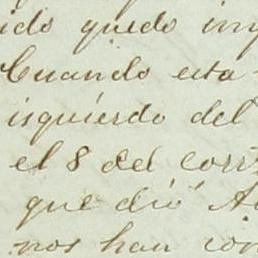 ido quedo im
Cuando esta
izquierdo del
el 8 del corri
que dió A
nos han con